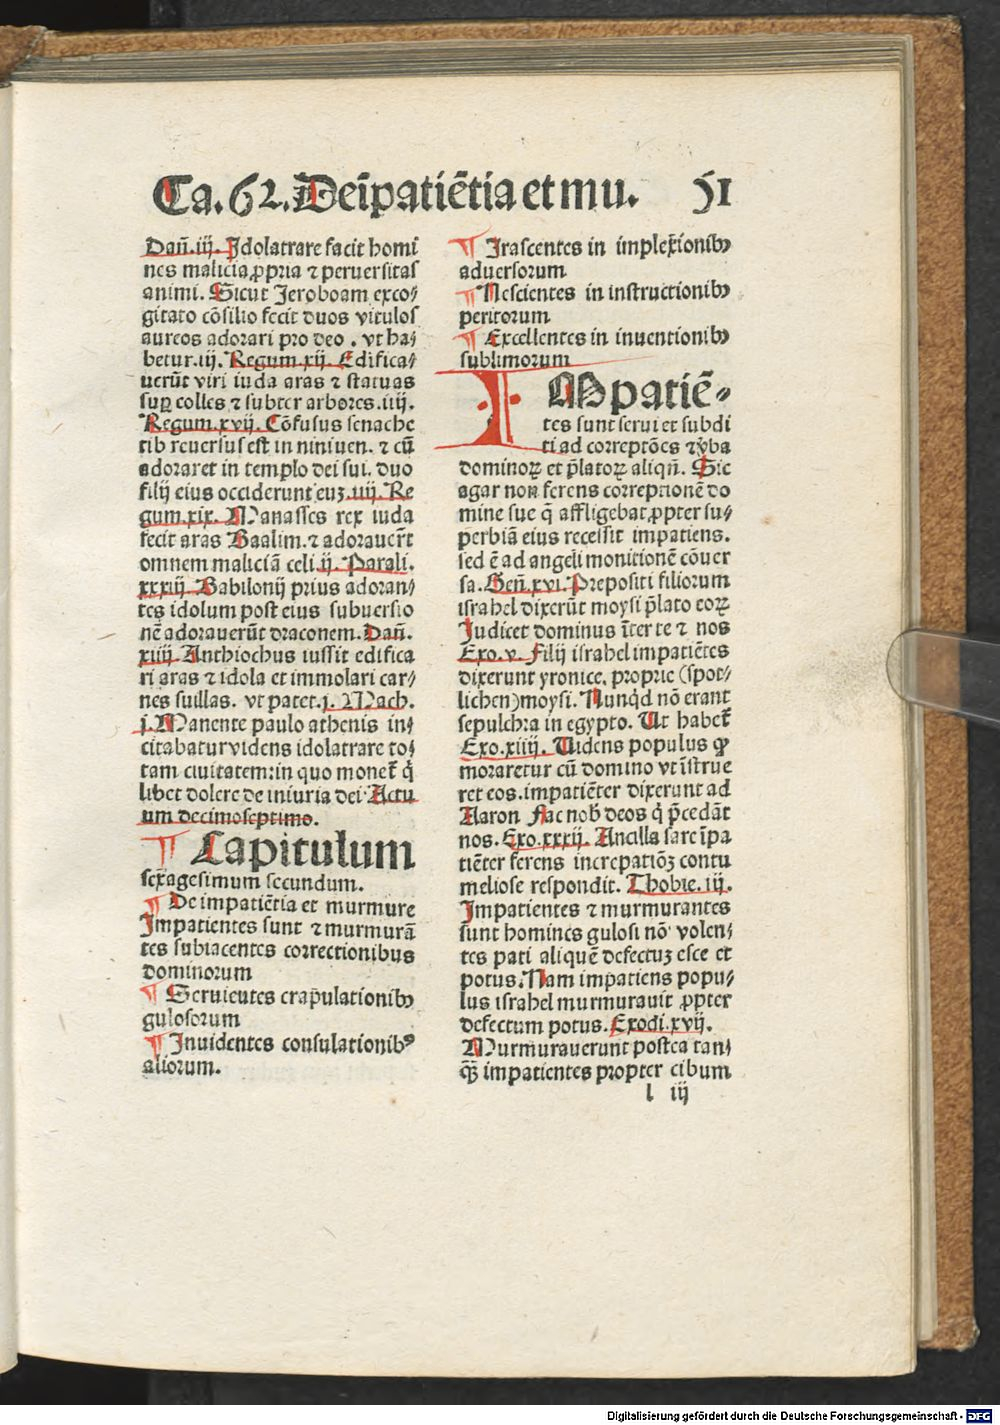 Ca. 62. De ĩpatiẽtia et mu. 51
Dañ. iij. Idolatrare facit homĩ
nes malicia ꝓpria ⁊ peruersitas
animi. Sicut Jeroboam exco⸗
gitato cõsilio fecit duos vitulos
aureos adorari pro deo. vt ha⸗
betur. iij. Regum. xij. Edifica⸗
uerũt viri iuda aras ⁊ statuas
suꝑ colles ⁊ subter arbores. iiij.
Regum. xvij. Cõfusus senache
rib reuersus est in niniuen. ⁊ cũ
adoraret in templo dei sui. duo
filij eius occiderunt euꝫ. iiij. Re
gum. xix. Manasses rex iuda
fecit aras Baalim. ⁊ adorauer̃t
omnem maliciã celi. ij. Parali.
xxxiij. Babilonij prius adoran⸗
tes idolum post eius subuersio
nẽ adorauerũt draconem. Dañ.
xiiij. Anthiochus iussit edifica
ri aras ⁊ idola et immolari car⸗
nes suillas. vt patet. j. Mach.
j. Manente paulo athenis in⸗
citabatur videns idolatrare to⸗
tam ciuitatem: in quo monet᷑ q̃
libet dolere de iniuria dei. Actu
um decimoseptimo.
¶ Capitulum
sexagesimum secundum.
¶ De impatiẽtia et murmure
Impatientes sunt ⁊ murmurã
tes subiacentes correctionibus
dominorum
¶ Seruientes crap̃ulationibꝰ
gulosorum
¶ Inuidentes consulationibꝰ
aliorum.
¶ Irascentes in implexionibꝰ
aduersorum
¶ Nescientes in instructionibꝰ
peritorum
¶ Excellentes in inuentionibꝰ
sublimorum
IMpatiẽ⸗
tes sunt serui et subdi
ti ad correptões ⁊ v̾ba
dominoꝝ et p̃latoꝝ aliqñ. Sic
agar non ferens correptionẽ do
mine sue q̃ affligebat ꝓpter su⸗
perbiã eius recessit impatiens.
sed ẽ ad angeli monitionẽ cõuer
sa. Geñ. xvi. Prepositi filiorum
israhel dixerũt moysi p̃lato eoꝝ
Judicet dominus ĩter te ⁊ nos
Exo. v. Filij israhel impatiẽtes
dixerunt yronice. proprie (spot⸗
lichen) moysi. Nunqd̃ nõ erant
sepulchra in egypto. Ut habet᷑
Exo. xiiij. Uidens populus ꝙ
moraretur cũ domino vt ĩstrue
ret eos. impatiẽter dixerunt ad
Aaron. Fac nob̾ deos q̇ p̃cedãt
nos. Exo. xxxij. Ancilla sare ĩpa
tiẽter ferens increpatiõꝫ contu
meliose respondit. Thobie. iij.
Impatientes ⁊ murmurantes
sunt homines gulosi nõ volen⸗
tes pati aliquẽ defectuꝫ esce et
potus. Nam impatiens popu⸗
lus israhel murmurauit ꝓpter
defectum potus. Exodi. xvij.
Murmurauerunt postea tan⸗
q̃ꝫ impatientes propter cibum
l iij
Digitalisierung gefördert durch die Deutsche Forschungsgemeinschaft - DFG